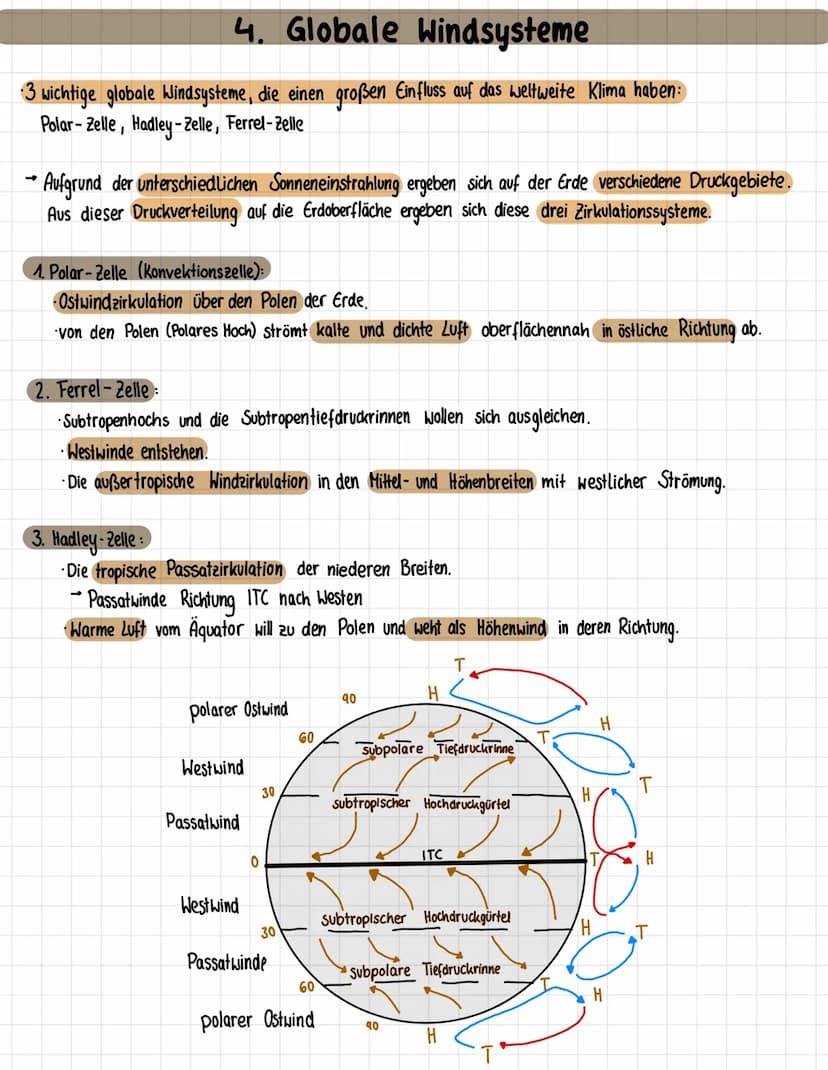 4. Globale Windsysteme
·3 wichtige globale Windsysteme, die einen großen Einfluss auf das weltweite Klima haben:
Polar-Zelle, Hadley-Zelle, Ferrel-Zelle
→ Aufgrund der unterschiedlichen Sonneneinstrahlung ergeben sich auf der Erde verschiedene Druckgebiete.
Aus dieser Druckverteilung auf die Erdoberfläche ergeben sich diese drei Zirkulationssysteme.
1. Polar-Zelle (Konvektionszelle):
·Ostwindzirkulation über den Polen der Erde.
·von den Polen (Polares Hoch) strömt kalte und dichte Luft oberflächennah in östliche Richtung ab.
2. Ferrel-Zelle:
·Subtropenhochs und die Subtropentiefdruckrinnen wollen sich ausgleichen.
·Westwinde entstehen.
·Die außertropische Windzirkulation in den Mittel- und Höhenbreiten mit westlicher Strömung.
3. Hadley-Zelle:
·Die tropische Passatzirkulation der niederen Breiten.
→ Passatwinde Richtung ITC nach Westen
·Warme Luft vom Äquator will zu den Polen und weht als Höhenwind in deren Richtung.
T
90 H
polarer Ostwind H
60 T
subpolare Tiefdruckrinne
Westwind T
30 H
subtropischer Hochdruckgürtel
Passatwind
0 ITC T H
Westwind
subtropischer Hochdruckgürtel
30 H T
Passatwinde
subpolare Tiefdruckrinne
60 T
H
polarer Ostwind
90 H
T